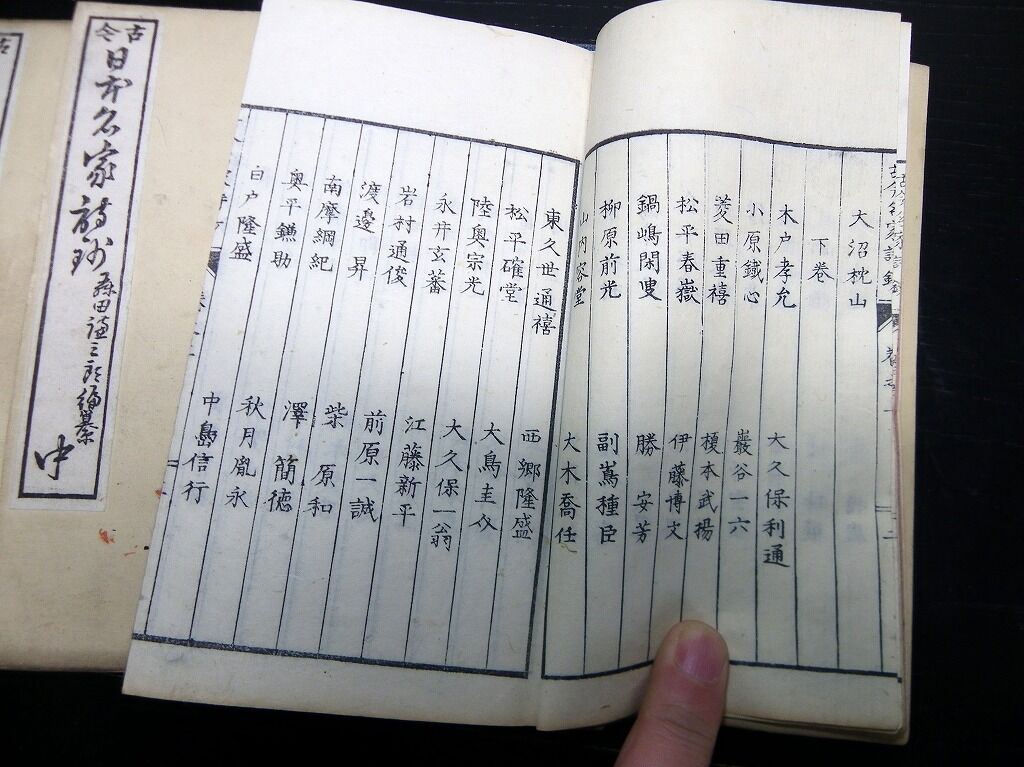 大沼枕山
下巻
木戸孝允 大久保利通
小原鐵心 巖谷一六
菱田重禧 榎本武揚
松平春嶽 伊藤博文
鍋嶋閑叟 勝安芳
柳原前光 副嶌種臣
山内容堂 大木喬任
東久世通禧 西郷隆盛
松平確堂 大鳥圭介
陸奥宗光 大久保一翁
永井玄蕃 江藤新平
岩村通俊 前原一誠
渡邊昇 柴原和
南摩綱紀 澤簡徳
奥平鐮助 秋月胤永
白戸隆盛 中島信行
古今
日本名家詩鈔
編纂
中